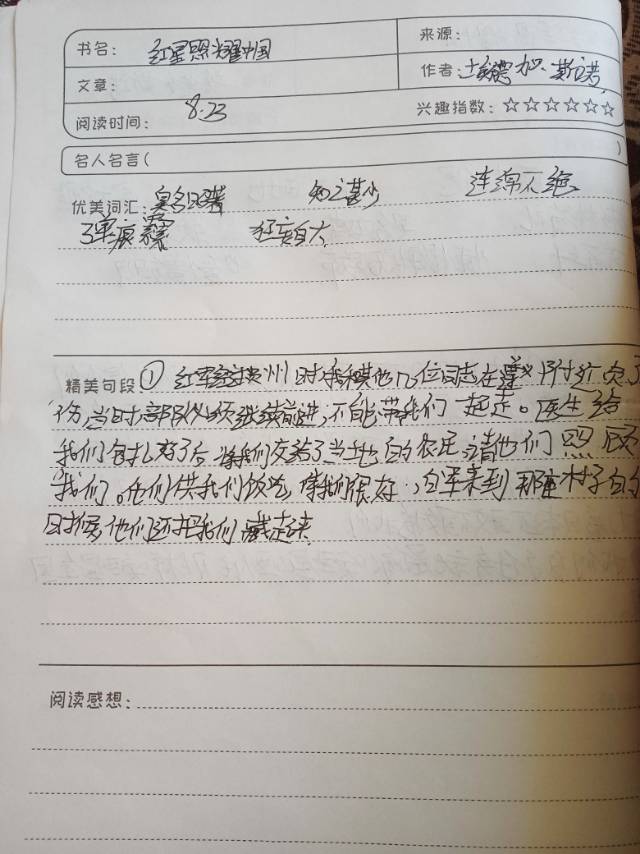 书名: 红星照耀中国
来源:
作者: 埃德加·斯诺
文章:
阅读时间: 8.23
兴趣指数: ☆☆☆☆☆☆
名人名言( )
优美词汇: 臭名昭著 知之甚少 连绵不绝
狂妄自大
精美句段 ① 红军经过贵州时我和其他几位同志在遵义附近负了
伤,当时部队必须继续前进,不能带我们一起走。医生给
我们包扎好了后,将我们交给了当地的农民,请他们照顾
我们。他们供我们饭吃,待我们很好,白军来到那座村子的
时候,他们还把我们藏起来
阅读感想: